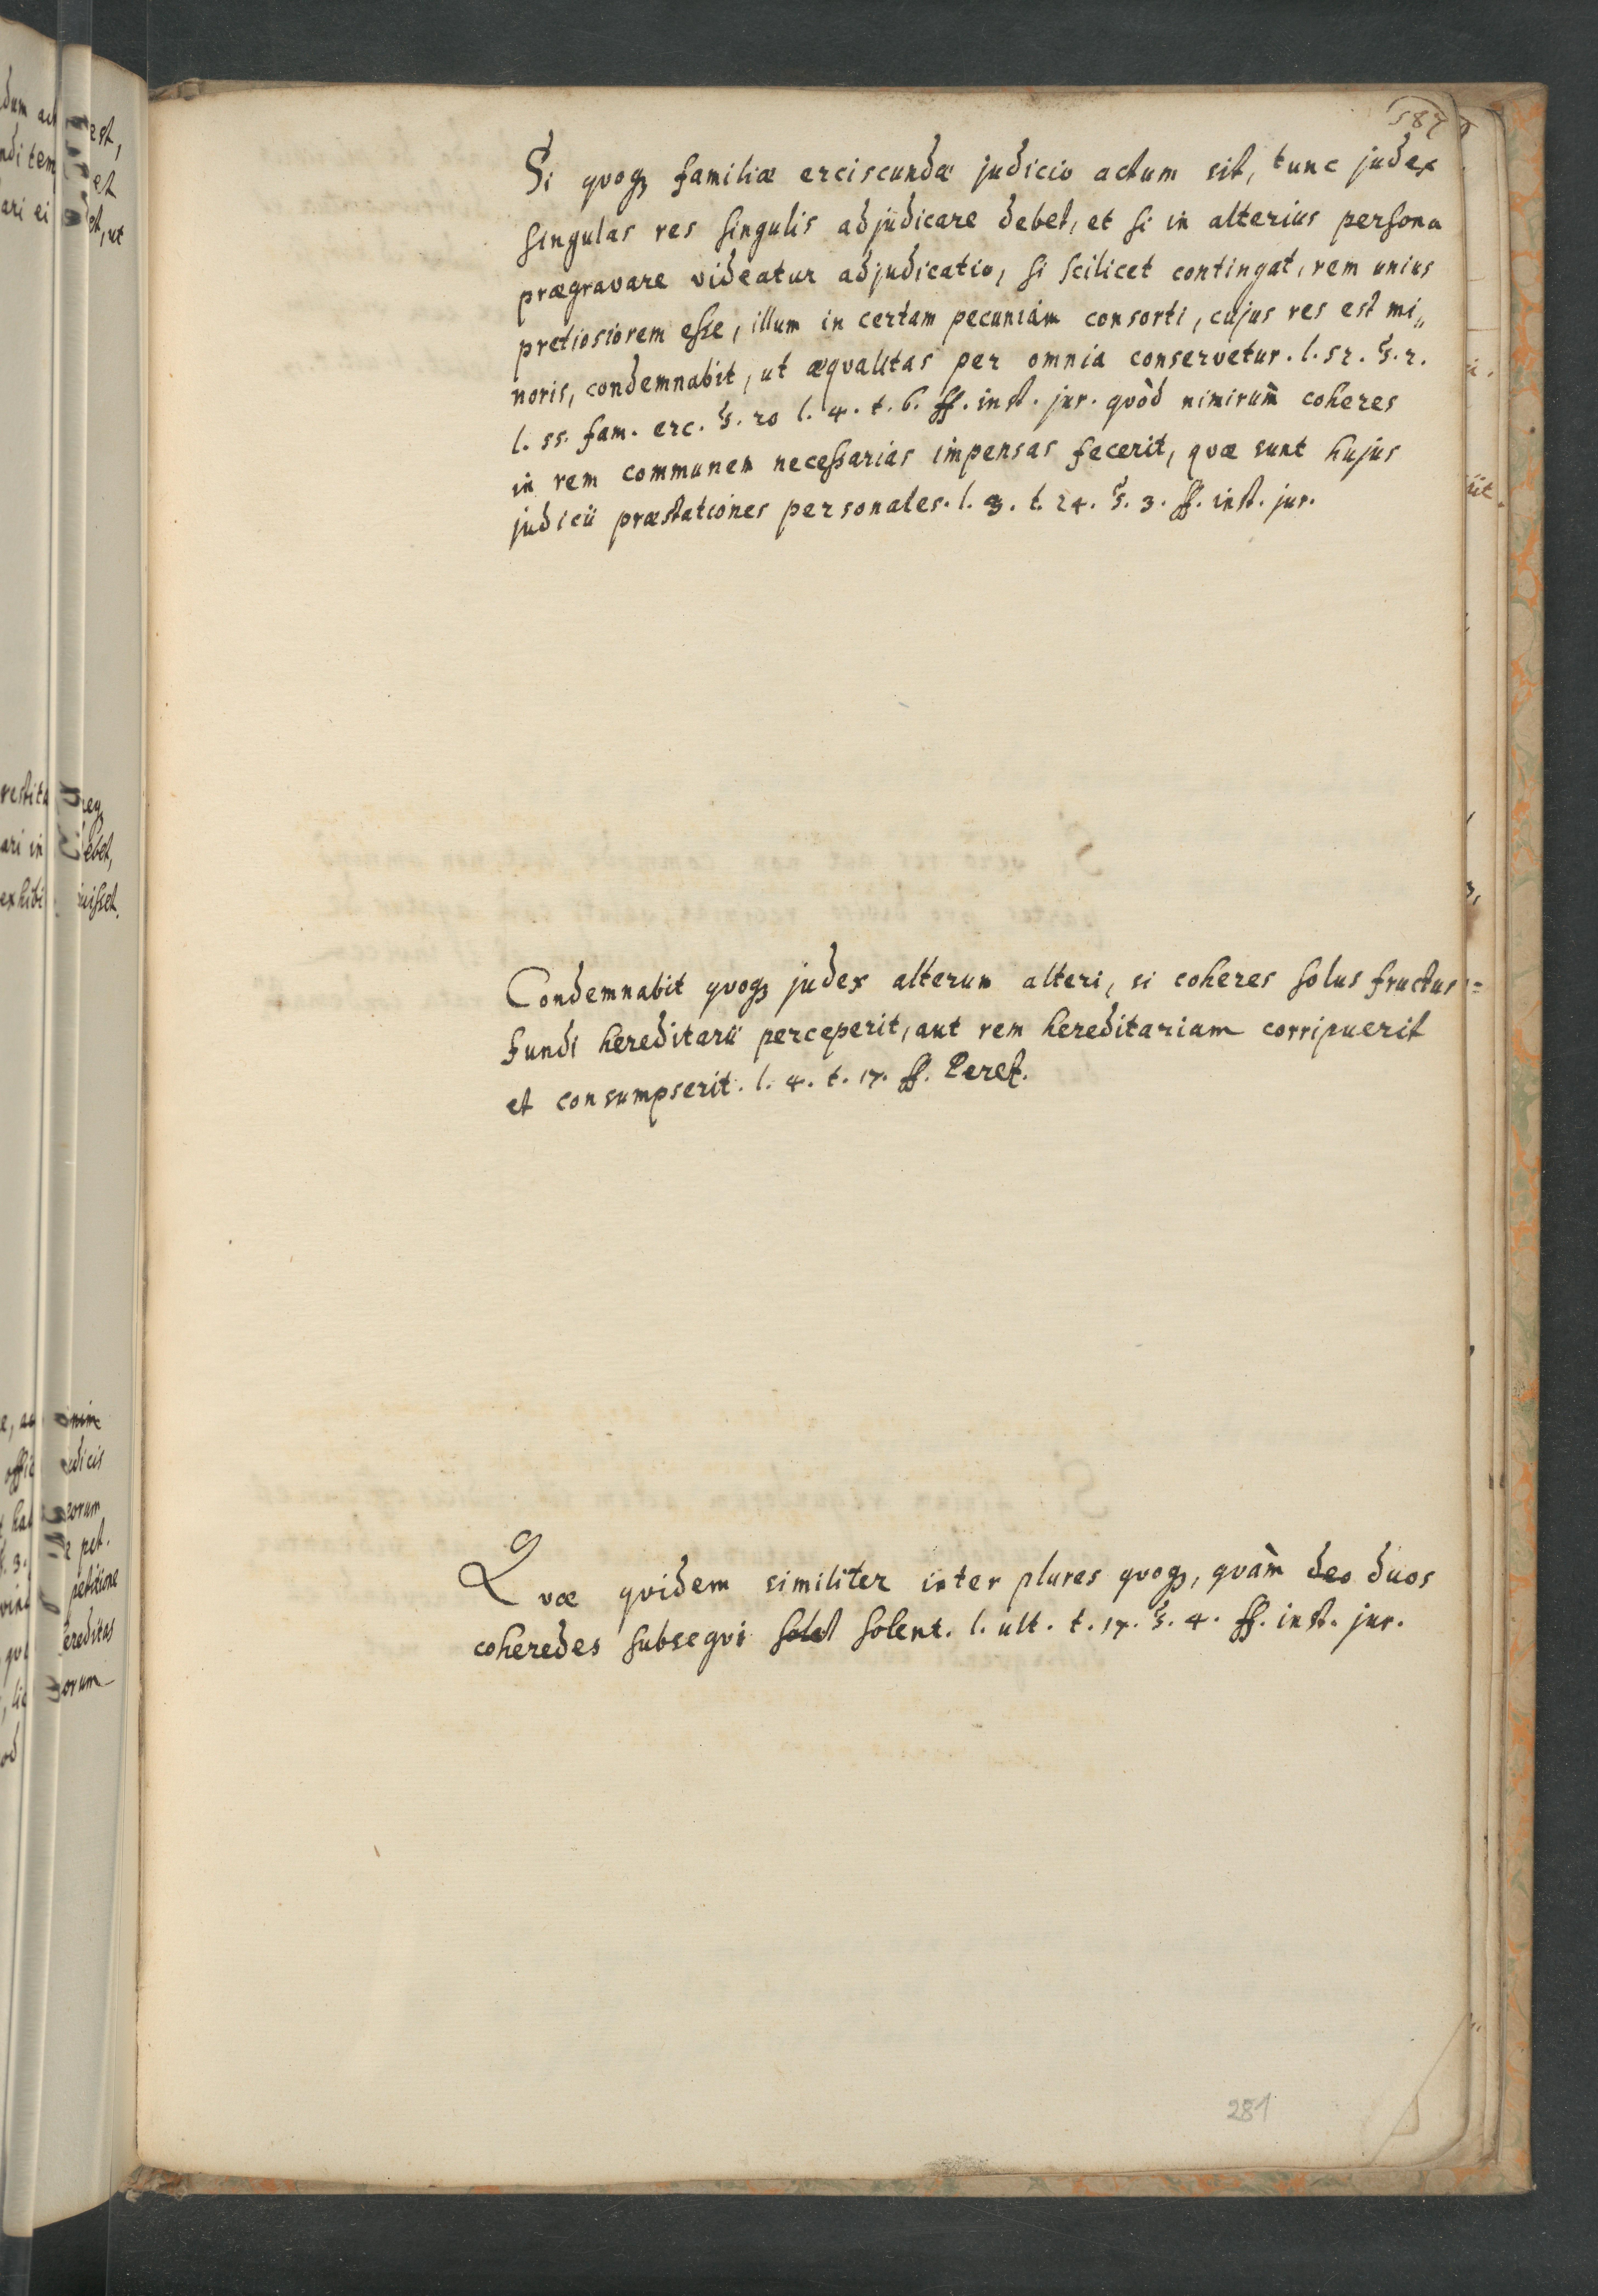 587
Si qvoqꝫ familiæ erciscundæ judicio actum sit, tunc judex
singulas res singulis adjudicare debet, et si in alterius persona
prægravare videatur adjudicatio, si scilicet contingat, rem unius
pretiosiorem esse, illum in certam pecuniam consorti, cujus res est mi„
noris, condemnabit, ut æqvalitas per omnia conservetur. l. 52. §. 2.
l. 55. fam. erc. §. 20 l. 4. t. 6. ff. inst. jur. qvòd nimirum coheres
in rem communem necessarias impensas fecerit, qvæ sunt hujus
judicii præstationes personales. l. 3. t. 24. §. 3. ff. inst. jur.
Condemnabit qvoqꝫ judex alterum alteri, si coheres solus fructus
fundi hereditarii perceperit, aut rem hereditariam corripuerit
et consumpserit. l. 4. t. 17. ff. Peret.
Qvæ qvidem similiter inter plures qvoqꝫ, qvàm deo duos
coheredes subseqvi solet solent. l. ult. t. 17. §. 4. ff. inst. jur.
281